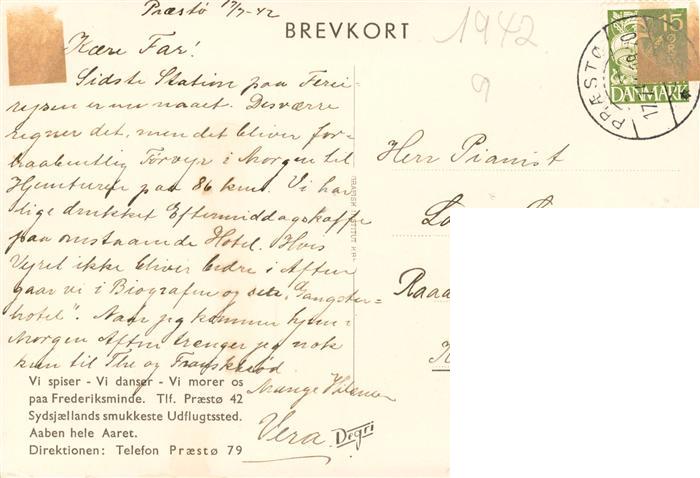 Præstø 17/7-42
BREVKORT
1942
9
Kære Far!
Sidste Station paa Ferie-
rejsen er nu naaet. Desværre
regner det, men det bliver for-
haabentlig Tørvejr i Morgen til
Hjemturen paa 86 km. Vi har
lige drukket Eftermiddagskaffe
paa omstaaende Hotel. Hvis
Vejret ikke bliver bedre i Aften
gaar vi i Biografen og ser „Gangster-
hotel". Naar jeg kommer hjem
Morgen Aften trænger jeg nok
kun til The og Franskbrød
Mange Hilsener
Vera
Degri
Vi spiser - Vi danser - Vi morer os
paa Frederiksminde. Tlf. Præstø 42
Sydsjællands smukkeste Udflugtssted.
Aaben hele Aaret.
Direktionen: Telefon Præstø 79
Herr Pianist
15
ØRE
DANMARK
PRÆSTØ
17